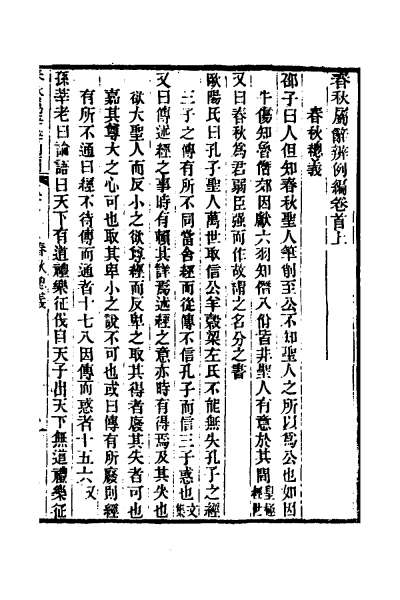 春秋屬辭辨例編卷首上
春秋總義
邵子曰人但知春秋聖人筆削至公不知聖人之所以爲公也如因
牛傷知魯僭郊因獻六羽知僭八佾皆非聖人有意於其間皇極經世
又曰春秋爲君弱臣强而作故謂之名分之書
歐陽氏曰孔子聖人萬世取信公羊穀梁左氏不能無失孔子之經
三子之傳有所不同當舍經而從傳不信孔子而信三子惑也文集
又曰傳述經之事時有賴其詳焉述經之意亦時有得焉及其失也
欲大聖人而反小之欲尊經而反卑之取其得者廢其失者可也
嘉其尊大之心可也取其卑小之說不可也或曰傳有所廢則經
有所不通曰經不待傳而通者十七八因傳而惑者十五六又
孫莘老曰論語曰天下有道禮樂征伐自天子出天下無道禮樂征
春秋總義